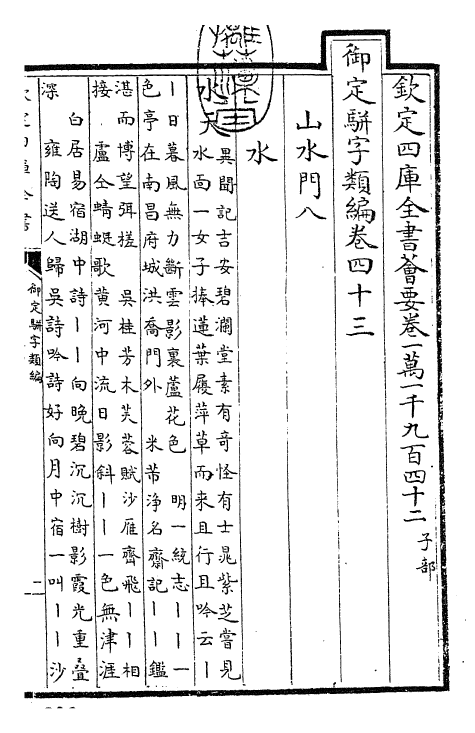 欽定四庫全書薈要卷一萬一千九百四十二 子部
御定駢字類編卷四十三
山水門八
水
水天 異聞記吉安碧瀾堂素有奇怪有士晁紫芝嘗見
水面一女子捧蓮葉履萍草而來且行且吟云丨
丨日暮風無力斷雲影裏蘆花色 明一統志丨丨一
色亭在南昌府城洪喬門外 米芾淨名齋記丨丨鑑
湛而博望弭槎 吳桂芳木芙蓉賦沙雁齊飛丨丨相
接 盧仝蜻蜓歌黄河中流日影斜丨丨一色無津涯
白居易宿湖中詩丨丨向晚碧沉沉樹影霞光重疊
深 雍陶送人歸吳詩吟詩好向月中宿一叫丨丨沙
御定駢字類編